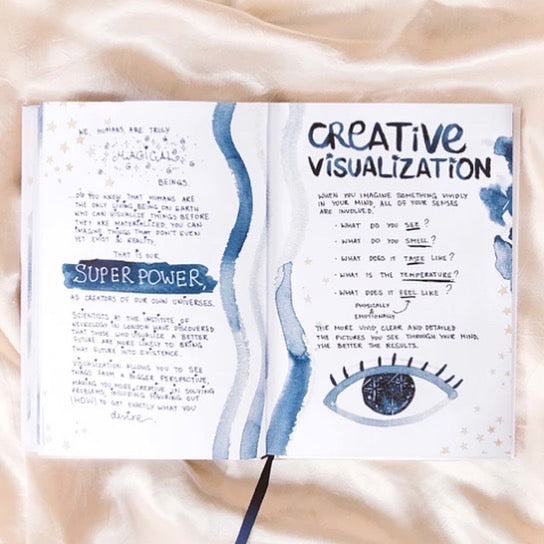 WE, HUMANS ARE TRULY
MAGICAL
BEINGS.
DID YOU KNOW THAT HUMANS ARE
THE ONLY LIVING BEING ON EARTH
WHO CAN VISUALIZE THINGS BEFORE
THEY ARE MATERIALIZED. YOU CAN
IMAGINE THINGS THAT DON'T EVEN
YET EXIST IN REALITY.
THAT IS OUR
SUPER POWER,
AS CREATORS OF OUR OWN UNIVERSES.
SCIENTISTS AT THE INSTITUTE OF
NEUROLOGY IN LONDON HAVE DISCOVERED
THAT THOSE WHO VISUALIZE A BETTER
FUTURE ARE MORE LIKELY TO BRING
THAT FUTURE INTO EXISTENCE.
VISUALIZATION ALLOWS YOU TO SEE
THINGS FROM A BIGGER PERSPECTIVE,
MAKING YOU MORE CREATIVE IN SOLVING
PROBLEMS, INCLUDING FIGURING OUT
(HOW) TO GET EXACTLY WHAT YOU
desire
CREATIVE
VISUALIZATION
WHEN YOU IMAGINE SOMETHING VIVIDLY
IN YOUR MIND, ALL OF YOUR SENSES
ARE INVOLVED.
• WHAT DO YOU SEE?
• WHAT DO YOU SMELL?
• WHAT DOES IT TASTE LIKE?
• WHAT IS THE TEMPERATURE?
• WHAT DOES IT FEEL LIKE?
PHYSICALLY
&
EMOTIONALLY
THE MORE VIVID, CLEAR AND DETAILED
THE PICTURES YOU SEE THROUGH YOUR MIND,
THE BETTER THE RESULTS.